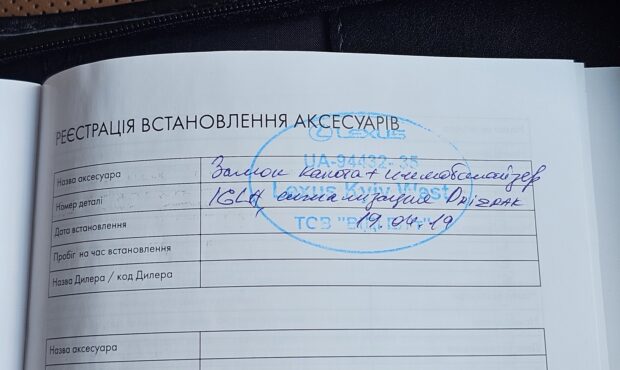 РЕЄСТРАЦІЯ ВСТАНОВЛЕННЯ АКСЕСУАРІВ
LEXUS
UA-94432-35
Lexus Kyiv West
ТОВ
Назва аксесуара Замок капота + иммобилайзер
Номер деталі IGLA сигнализация Prizrak
Дата встановлення 19.04.19
Пробіг на час встановлення
Назва Дилера / код Дилера
Назва аксесуара
Номер деталі